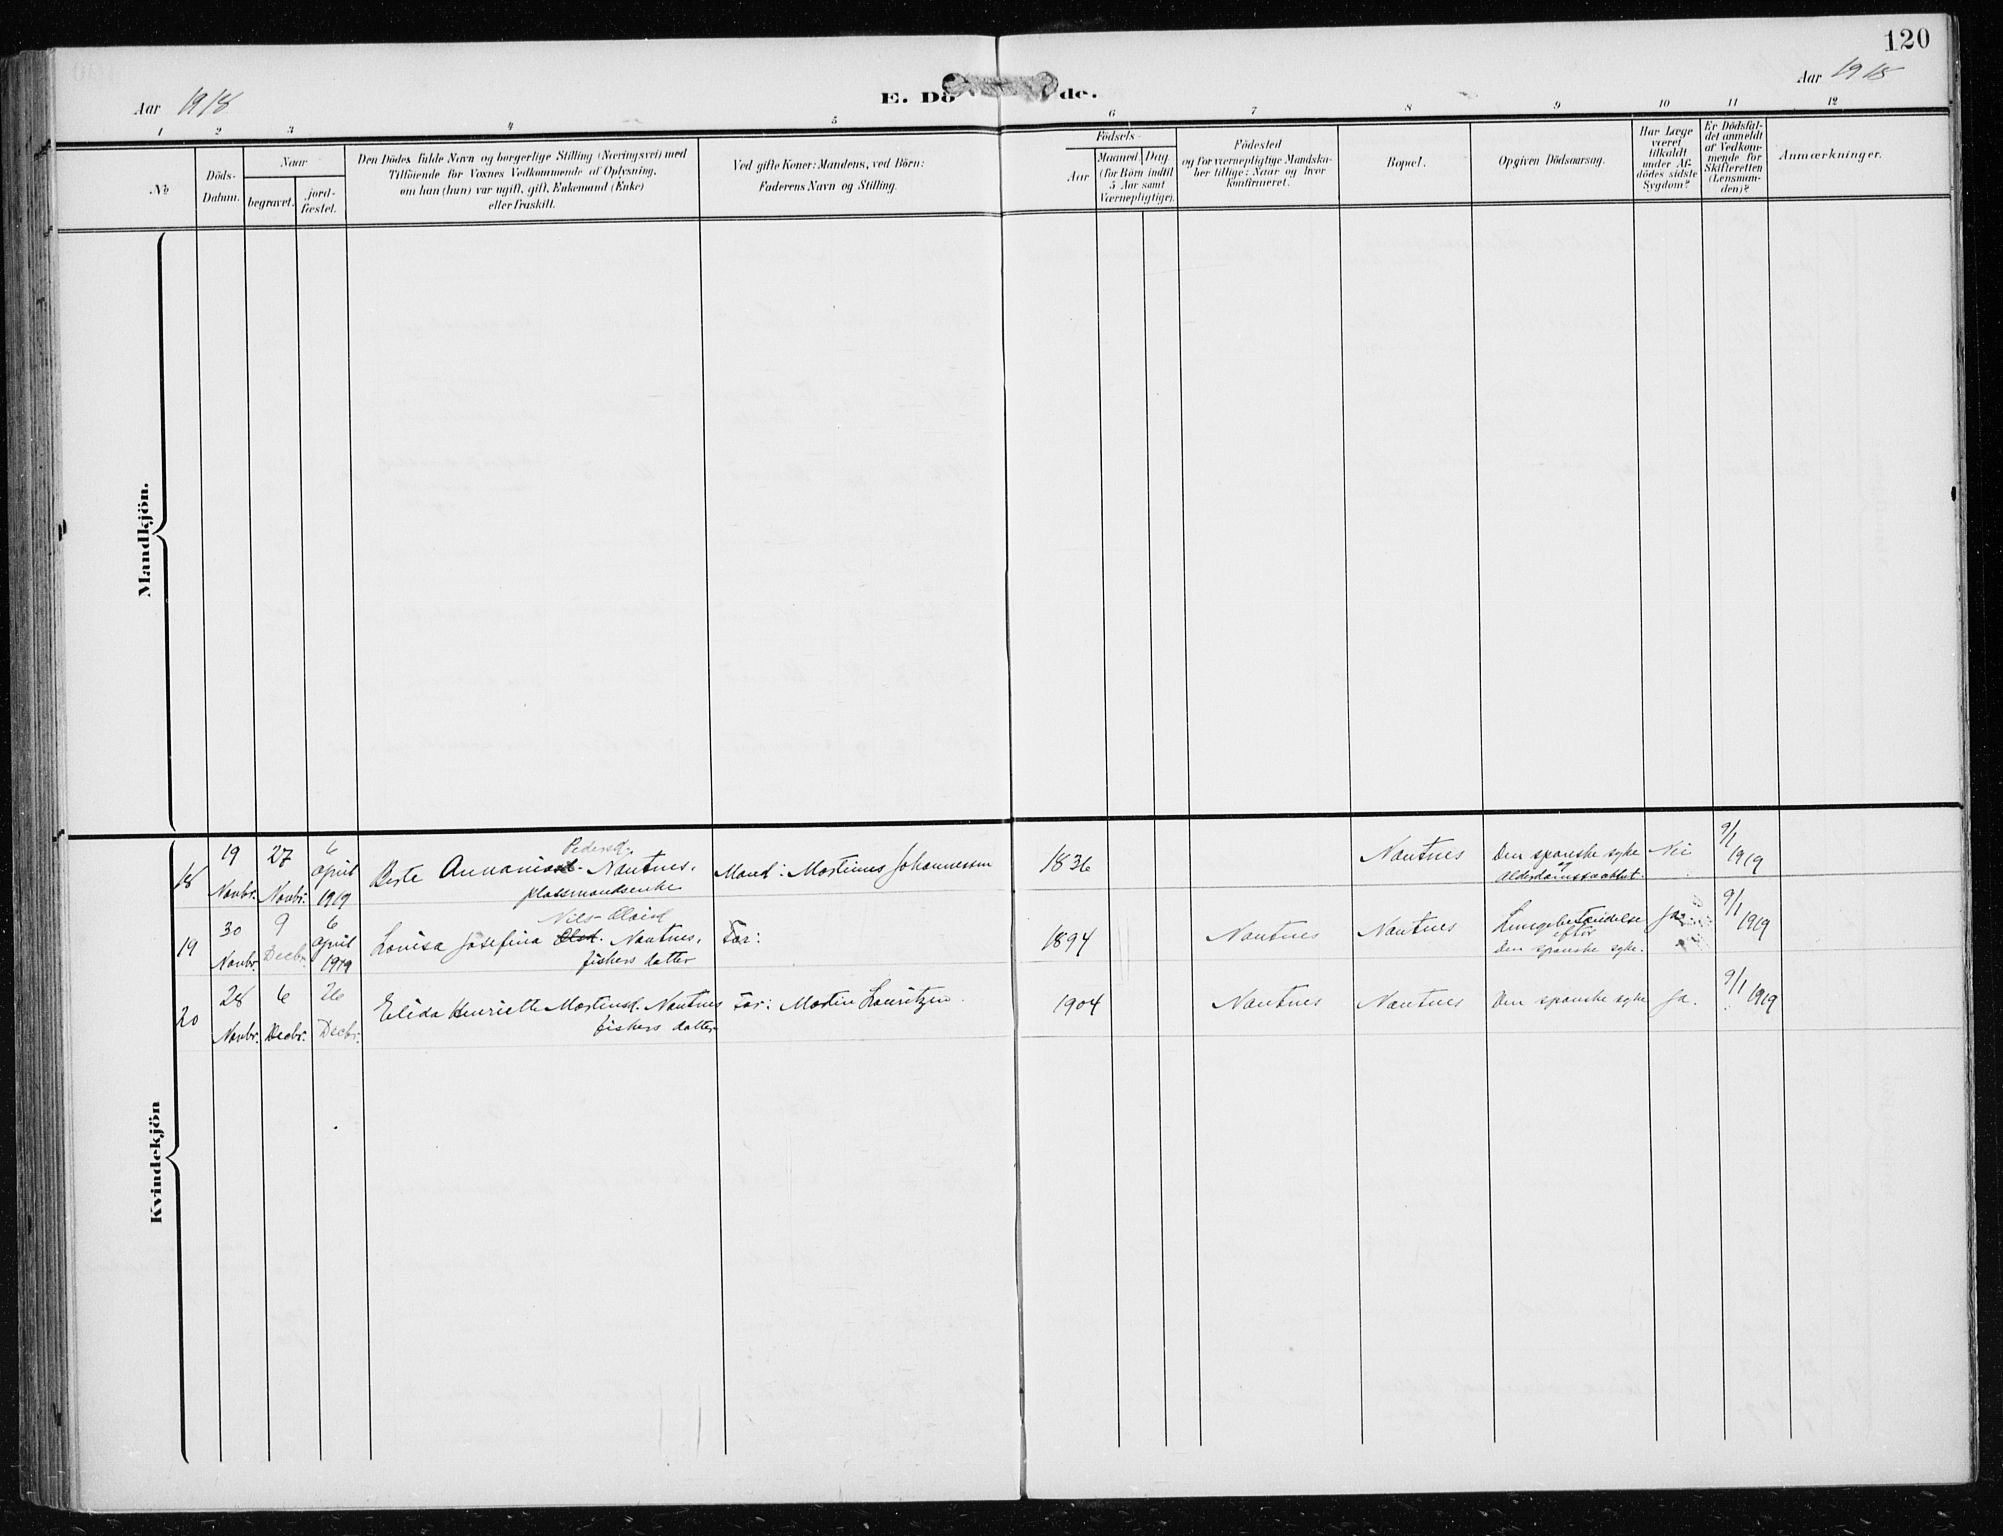 120
Aar 1918
E. Dö de.
Aar 1918
1 2 3 4 5 6 7 8 9 10 11 12
No
Döds-
Datum.
Naar
begravet.
jord-
fæstet.
Den Dödes fulde Navn og borgerlige Stilling (Næringsvei) med
Tilföiende for Voxnes Vedkommende af Oplysning,
om han (hun) var ugift, gift, Enkemand (Enke)
eller fraskilt.
Ved gifte Koner: Mandens, ved Börn:
Faderens Navn og Stilling.
Födsels-
Aar
Maaned Dag
(for Börn indtil
5 Aar samt
Værnepligtige).
Födested
og for værnepligtige Mandska-
ber tillige: Naar og hvor
konfirmeret.
Bopæl.
Opgiven Dödsaarsag.
Har Læge
været
tilkaldt
under Af-
dödes sidste
Sygdom?
Er Dödsfal-
det anmeldt
af Vedkom-
mende for
Skifteretten
(Lensman-
den)?
Anmærkninger.
Mandkjön.
Kvindekjön
18
19
Novbr.
27
Novbr.
6
april
1919
Pedersd.
Berte Nautnes.
plassmandsenke
Mand: Martinus Johannessen
1836
Nautnes
Den spanske syke
og
Nei
9/1
1919
19
30
Novbr.
9
Decbr.
6
april
1919
Nils-Olaisd
Lovisa Josefina Olsd. Nautnes.
fiskers datter
Far:
1894
Nautnes
Nautnes
Lungebetændelse
efter
Den spanske syke.
Ja
9/1
1919
20
28
Novbr.
6
Decbr.
26
Decbr.
Elida Henriette Martinsd. Nautnes
fiskers datter
Far: Martin Lauritzen
1904
Nautnes
Nautnes
Den spanske syke
Ja.
9/1 1919